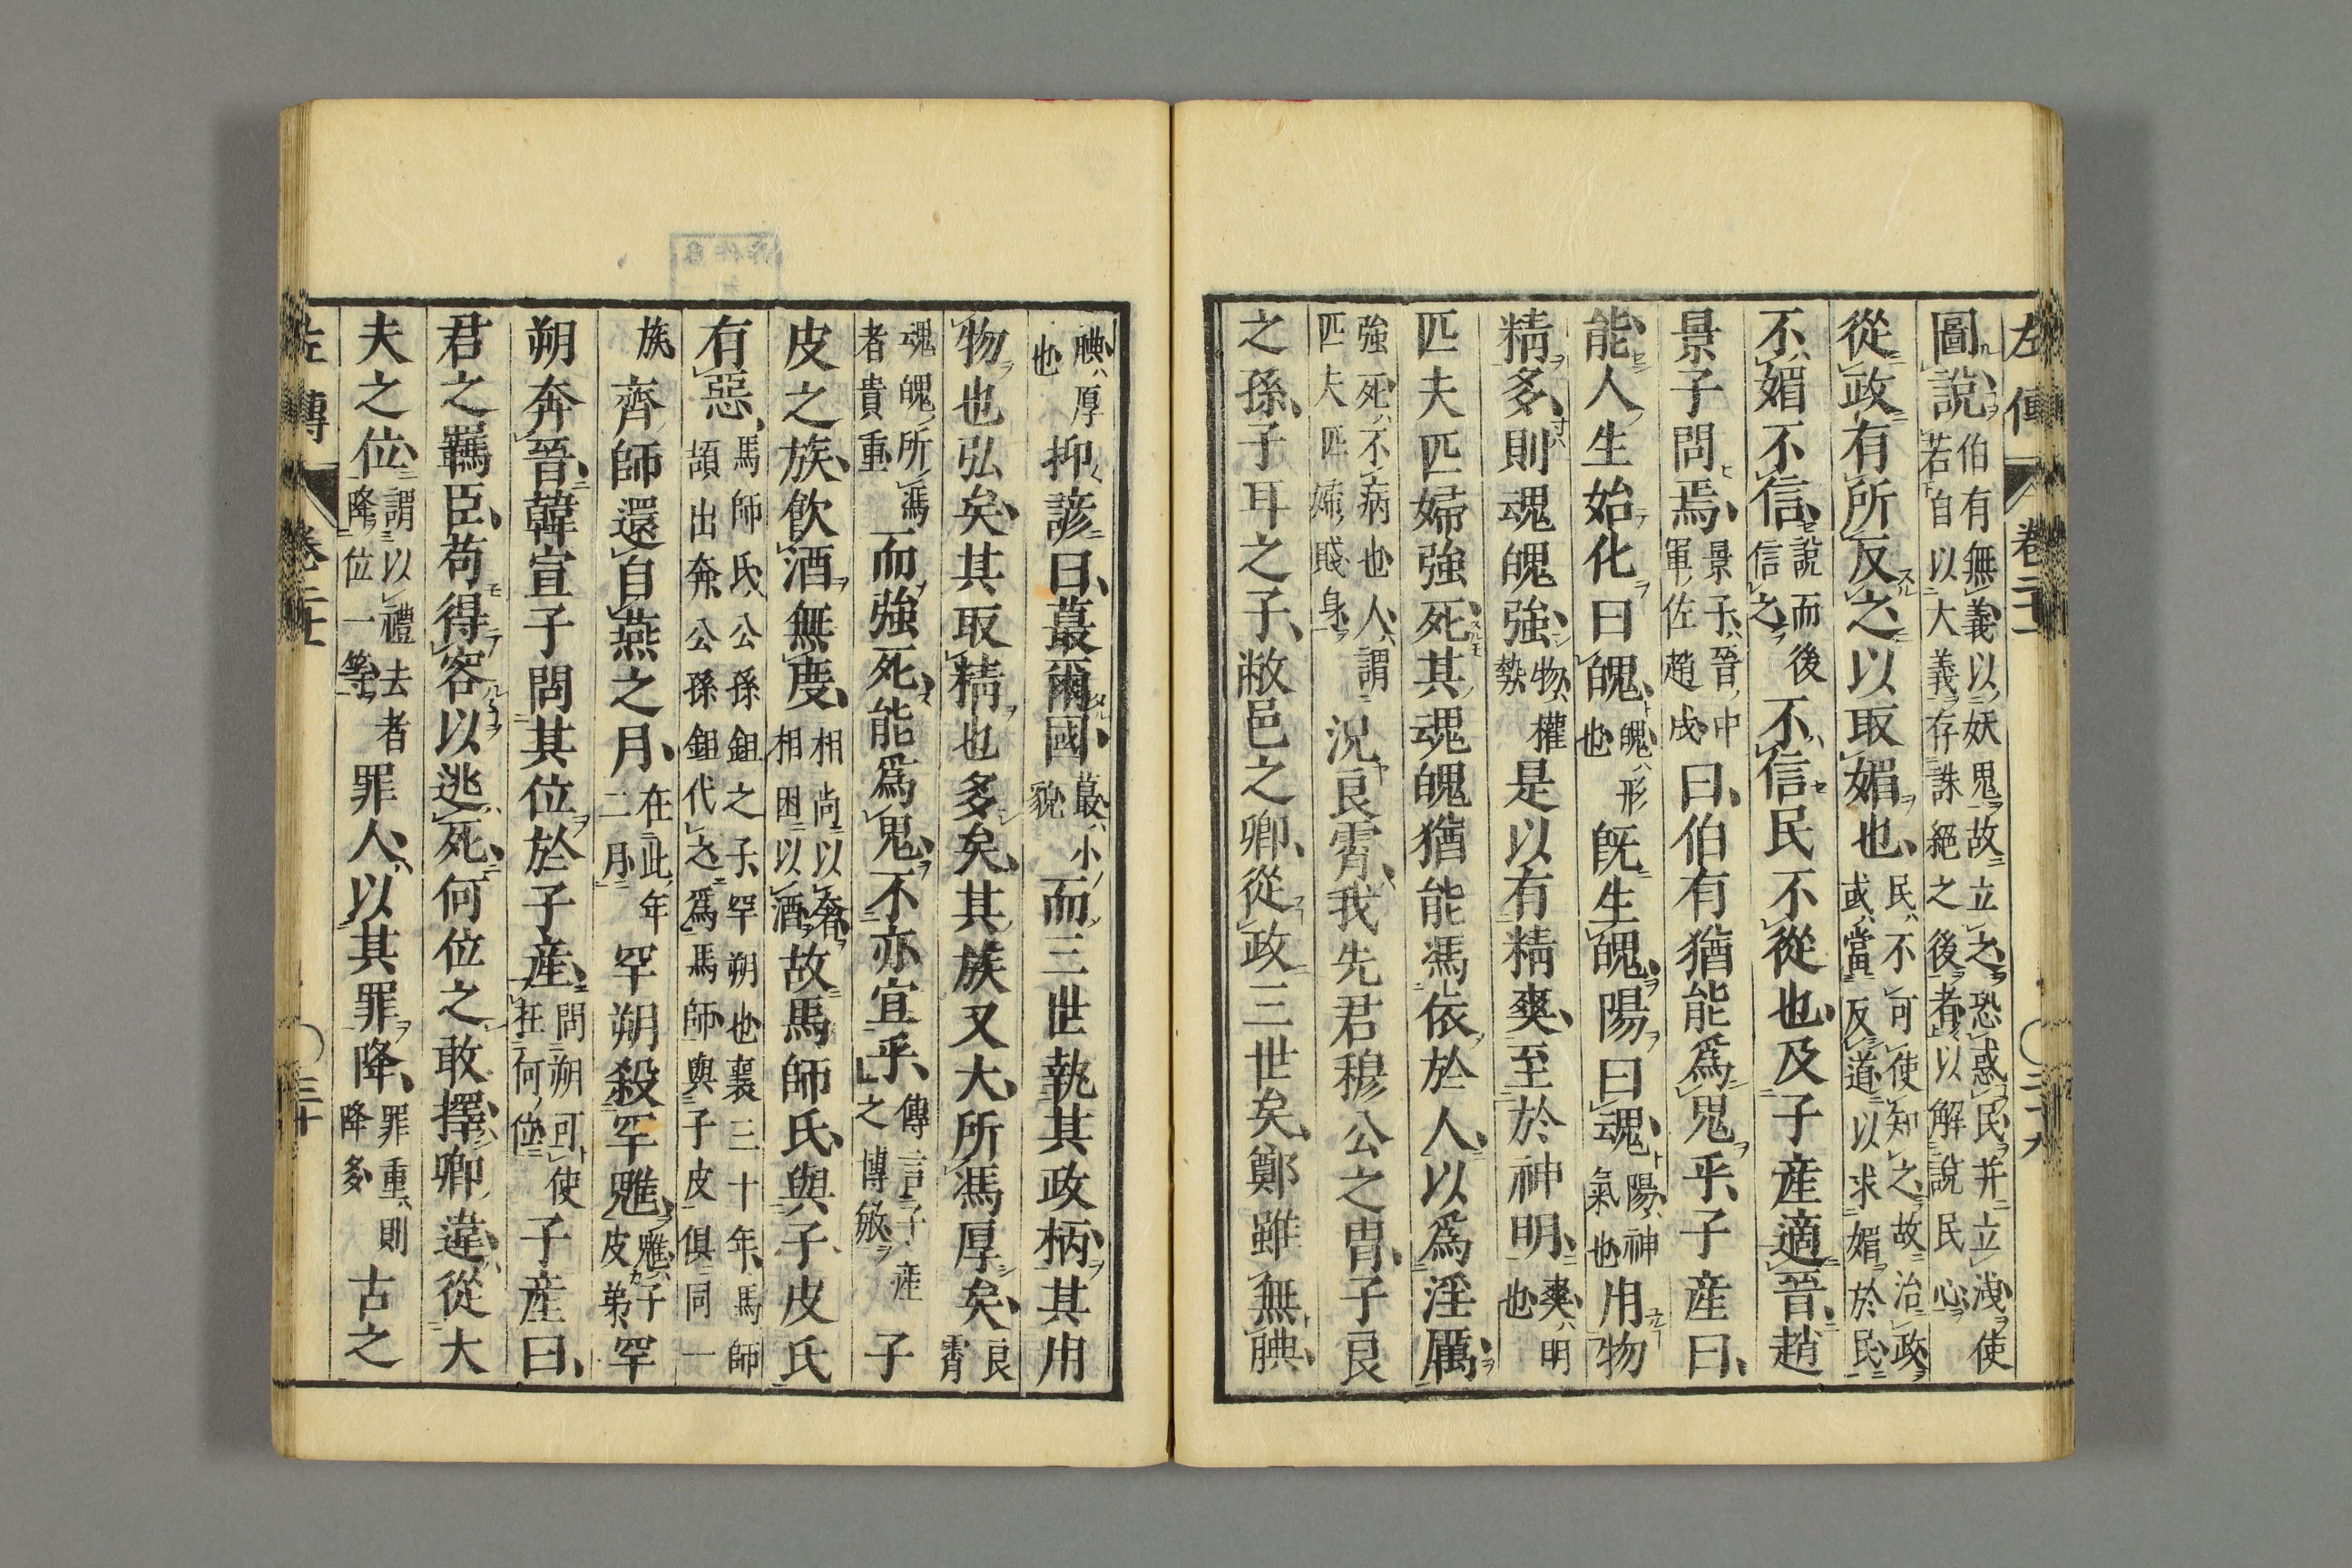 左傳 卷二十一 二十九
圖說伯有無義以妖鬼故立之恐惑民并立洩使若自以大義存誅絕之後者以解說民心
從政有所反之以取媚也民不可使知之故治政或當反道以求媚於民
不媚不信說而後信之不信民不從也及子產適晉趙
景子問焉景子晉中軍佐趙成曰伯有猶能爲鬼乎子產曰
能人生始化曰魄魄形也旣生魄陽曰魂陽神氣也用物
精多則魂魄強物權勢是以有精爽至於神明爽明也
匹夫匹婦強死其魂魄猶能馮依於人以爲淫厲
強死不病也人謂匹夫匹婦賤身況良霄我先君穆公之冑子良
之孫子耳之子敝邑之卿從政三世矣鄭雖無腆
腆厚也抑諺曰蕞爾國蕞小貌而三世執其政柄其用
物也弘矣其取精也多矣其族又大所馮厚矣良霄
魂魄所馮者貴重而強死能爲鬼不亦宜乎傳言子產之博敏子
皮之族飲酒無度相尚以奢相困以酒故馬師氏與子皮氏
有惡馬師氏公孫鉏之子罕朔也襄三十年馬師頡出奔公孫鉏代之爲馬師與子皮俱同一
族齊師還自燕之月在此年二月罕朔殺罕魋魋子皮弟罕
朔奔晉韓宣子問其位於子產問朔可使在何位子產曰
君之羈臣苟得容以逃死何位之敢擇卿違從大
夫之位謂以禮去者降位一等罪人以其罪降罪重則降多古之
左傳 卷二十一 三十